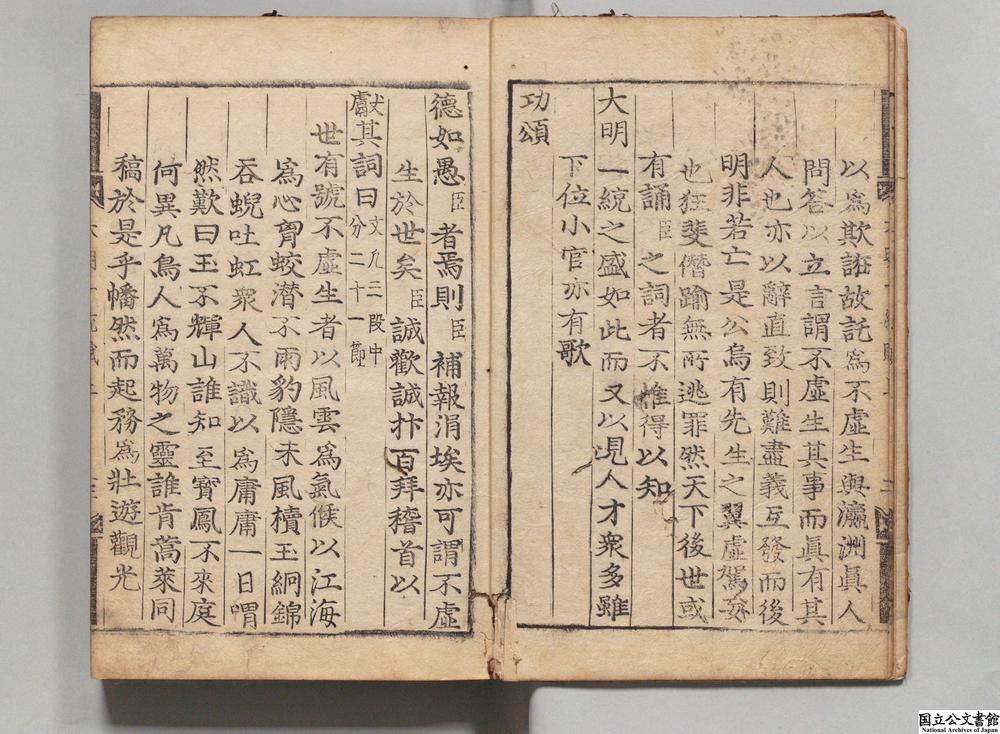 以爲欺誑故託爲不虛生與瀛洲眞人
問答以立言謂不虛生其事而眞有其
人也亦以辭直致則難盡義互發而後
明非若亡是公烏有先生之翼虛駕妄
也狂斐僭踰無所逃罪然天下後世或
有誦臣之詞者不惟得以知
大明一統之盛如此而又以見人才衆多雖
下位小官亦有歌
功頌
德如愚臣者焉則臣補報涓埃亦可謂不虛
生於世矣臣誠歡誠抃百拜稽首以
獻其詞曰文凡三段中分二十一節
世有號不虛生者以風雲爲氣候以江海
爲心胷蛟潜不雨豹隱未風櫝玉絅錦
吞蜺吐虹衆人不識以爲庸庸一日喟
然歎曰玉不輝山誰知至寳鳳不來庭
何異凡鳥人爲萬物之靈誰肯蒿萊同
稿於是乎幡然而起務爲壯遊觀光
国立公文書館
National Archives of Japan